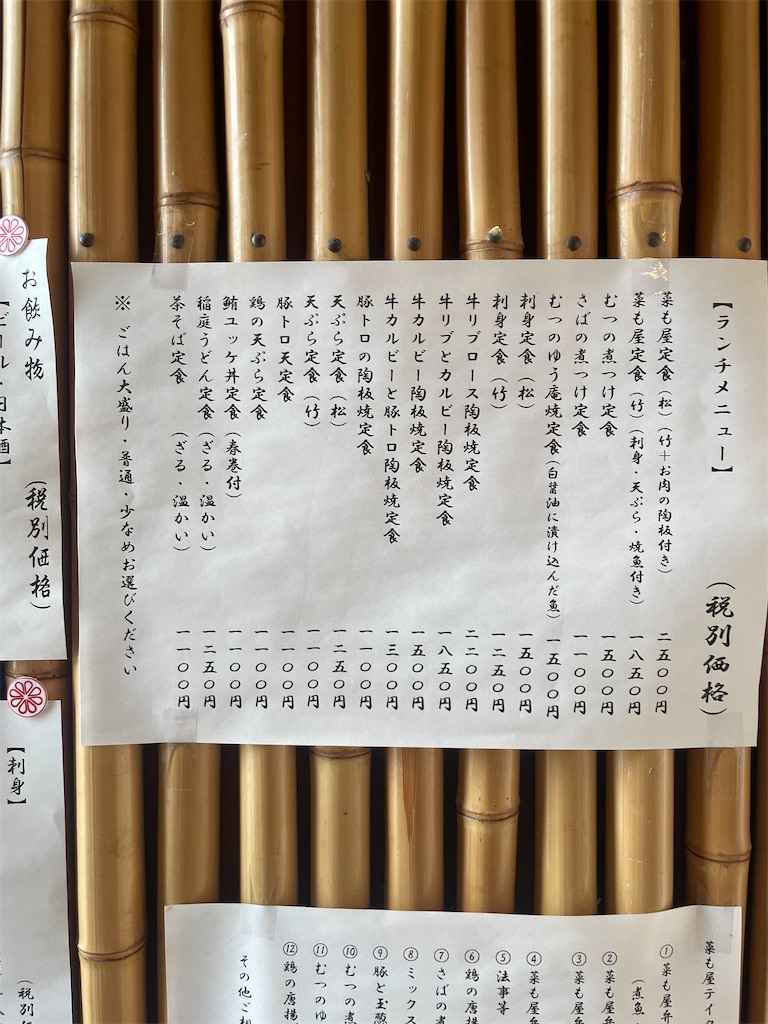 【ランチメニュー】 (税別価格)
菜も屋定食(松)(竹+お肉の陶板付き) 二五〇〇円
菜も屋定食(竹)(刺身・天ぷら・焼魚付き) 一八五〇円
むつの煮つけ定食 一五〇〇円
さばの煮つけ定食 一一〇〇円
むつのゆう庵焼定食(白醤油に漬け込んだ魚) 一五〇〇円
刺身定食(松) 一五〇〇円
刺身定食(竹) 一二五〇円
牛リブロース陶板焼定食 二二〇〇円
牛リブとカルビー陶板焼定食 一八五〇円
牛カルビー陶板焼定食 一五〇〇円
牛カルビーと豚トロ陶板焼定食 一三〇〇円
豚トロの陶板焼定食 一一〇〇円
天ぷら定食(松) 一二五〇円
天ぷら定食(竹) 一一〇〇円
豚トロ天定食 一一〇〇円
鶏の天ぷら定食 一一〇〇円
鮪ユッケ丼定食(春巻付) 一一〇〇円
稲庭うどん定食(ざる・温かい) 一二五〇円
茶そば定食 (ざる・温かい) 一一〇〇円
※ ごはん大盛り・普通・少なめお選びください
お飲み物 (税別価格)
【ビール・日本酒】
【刺身】
(税別
菜も屋テイ
①菜も屋弁
(煮魚
②菜も屋弁
③菜も屋弁
④菜も屋
⑤法事等
⑥鶏の唐揚
⑦さばの煮
⑧ミックス
⑨豚と玉葱
⑩むつの煮
⑪むつのゆ
⑫鶏の唐揚
その他ご相